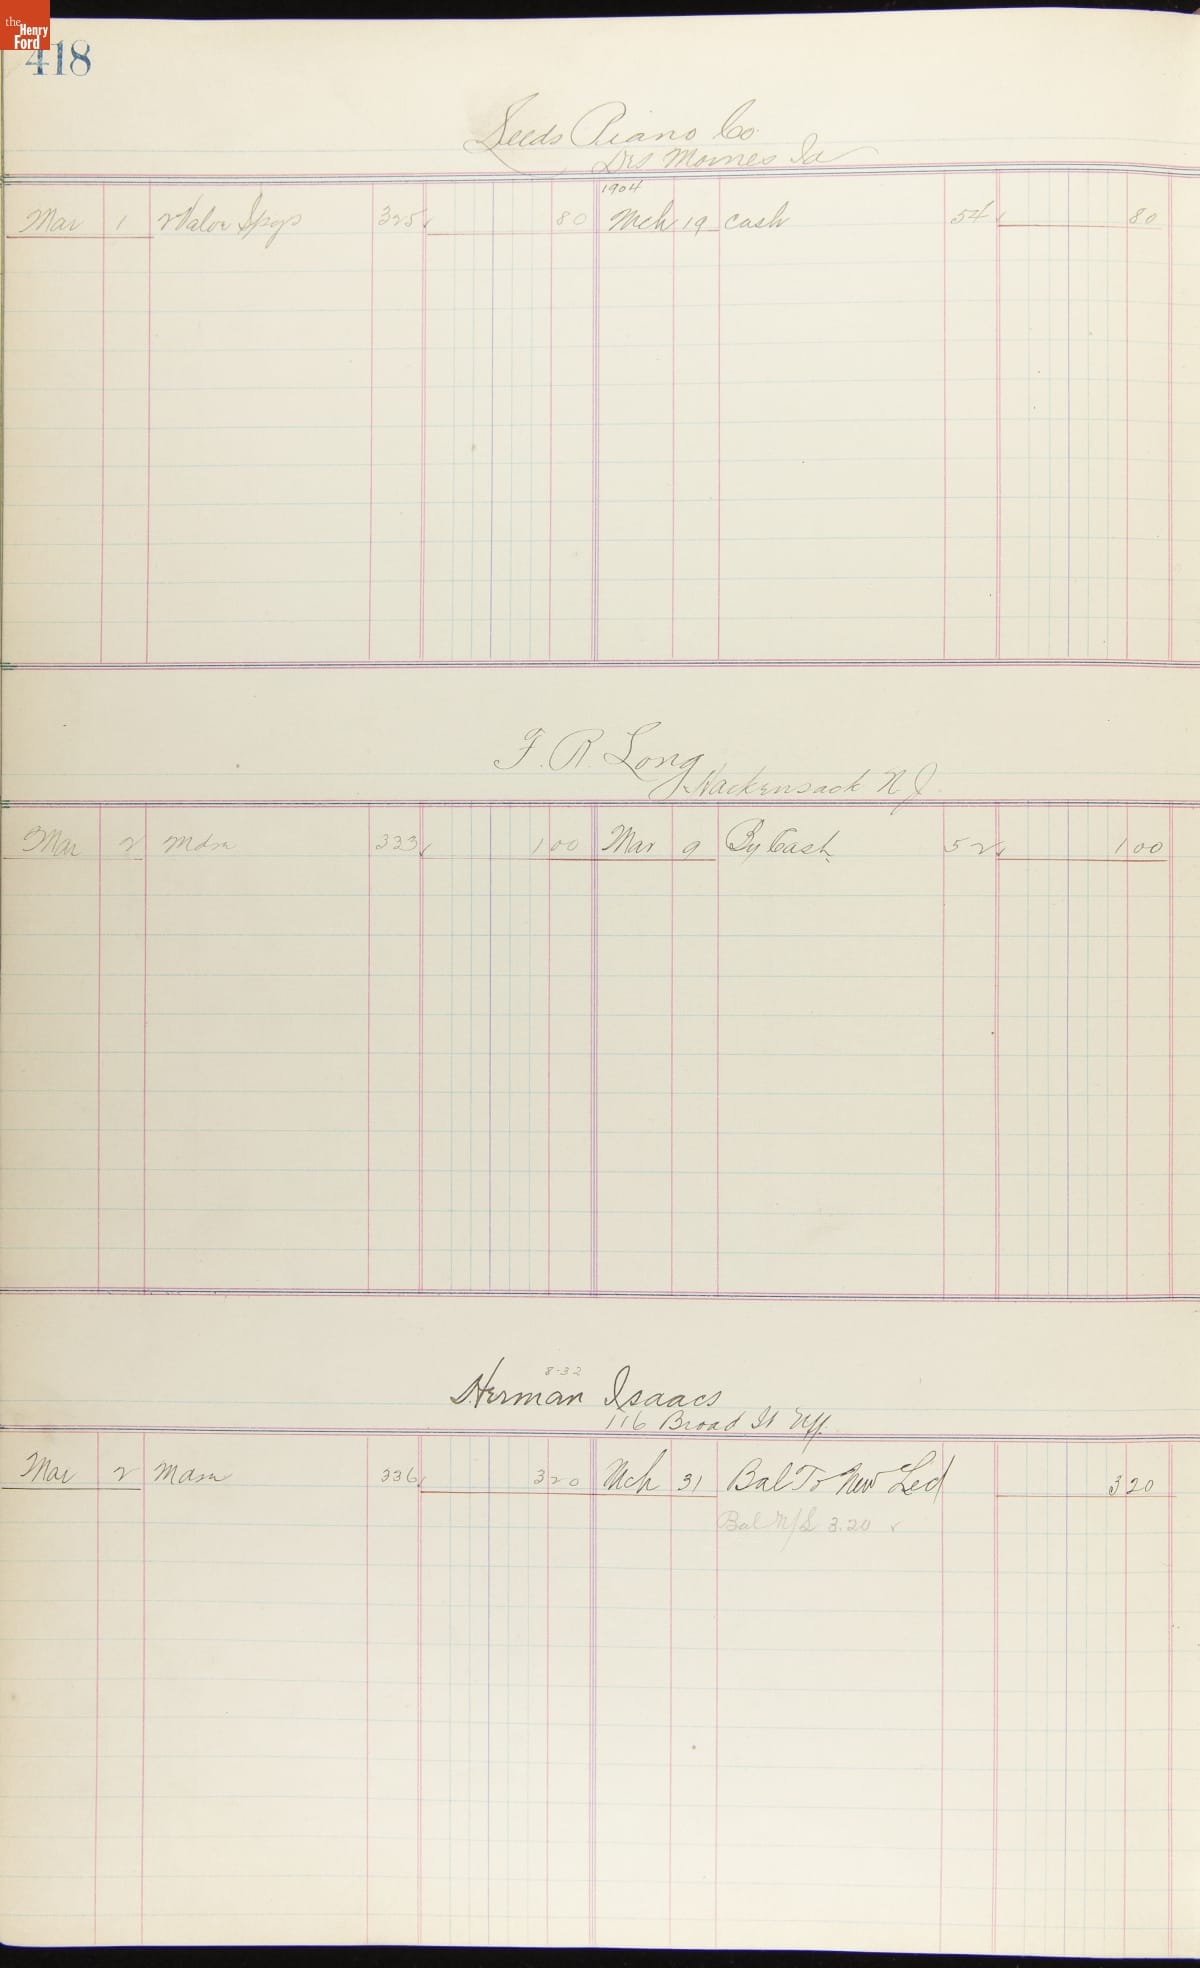 the Henry Ford
418
Leeds Piano Co
Des Moines Ia
1904
Mar 1 Valve Spgs 325 80 Mch 19 Cash 54 80
F. R. Long
Hackensack N J.
Mar 2 Mdse 333 100 Mar 9 By Cash 52 100
8-32
Herman Isaacs
116 Broad St
Mar 2 Mdse 336 320 Mch 31 Bal To New Led 320
Bal N/L 3.20